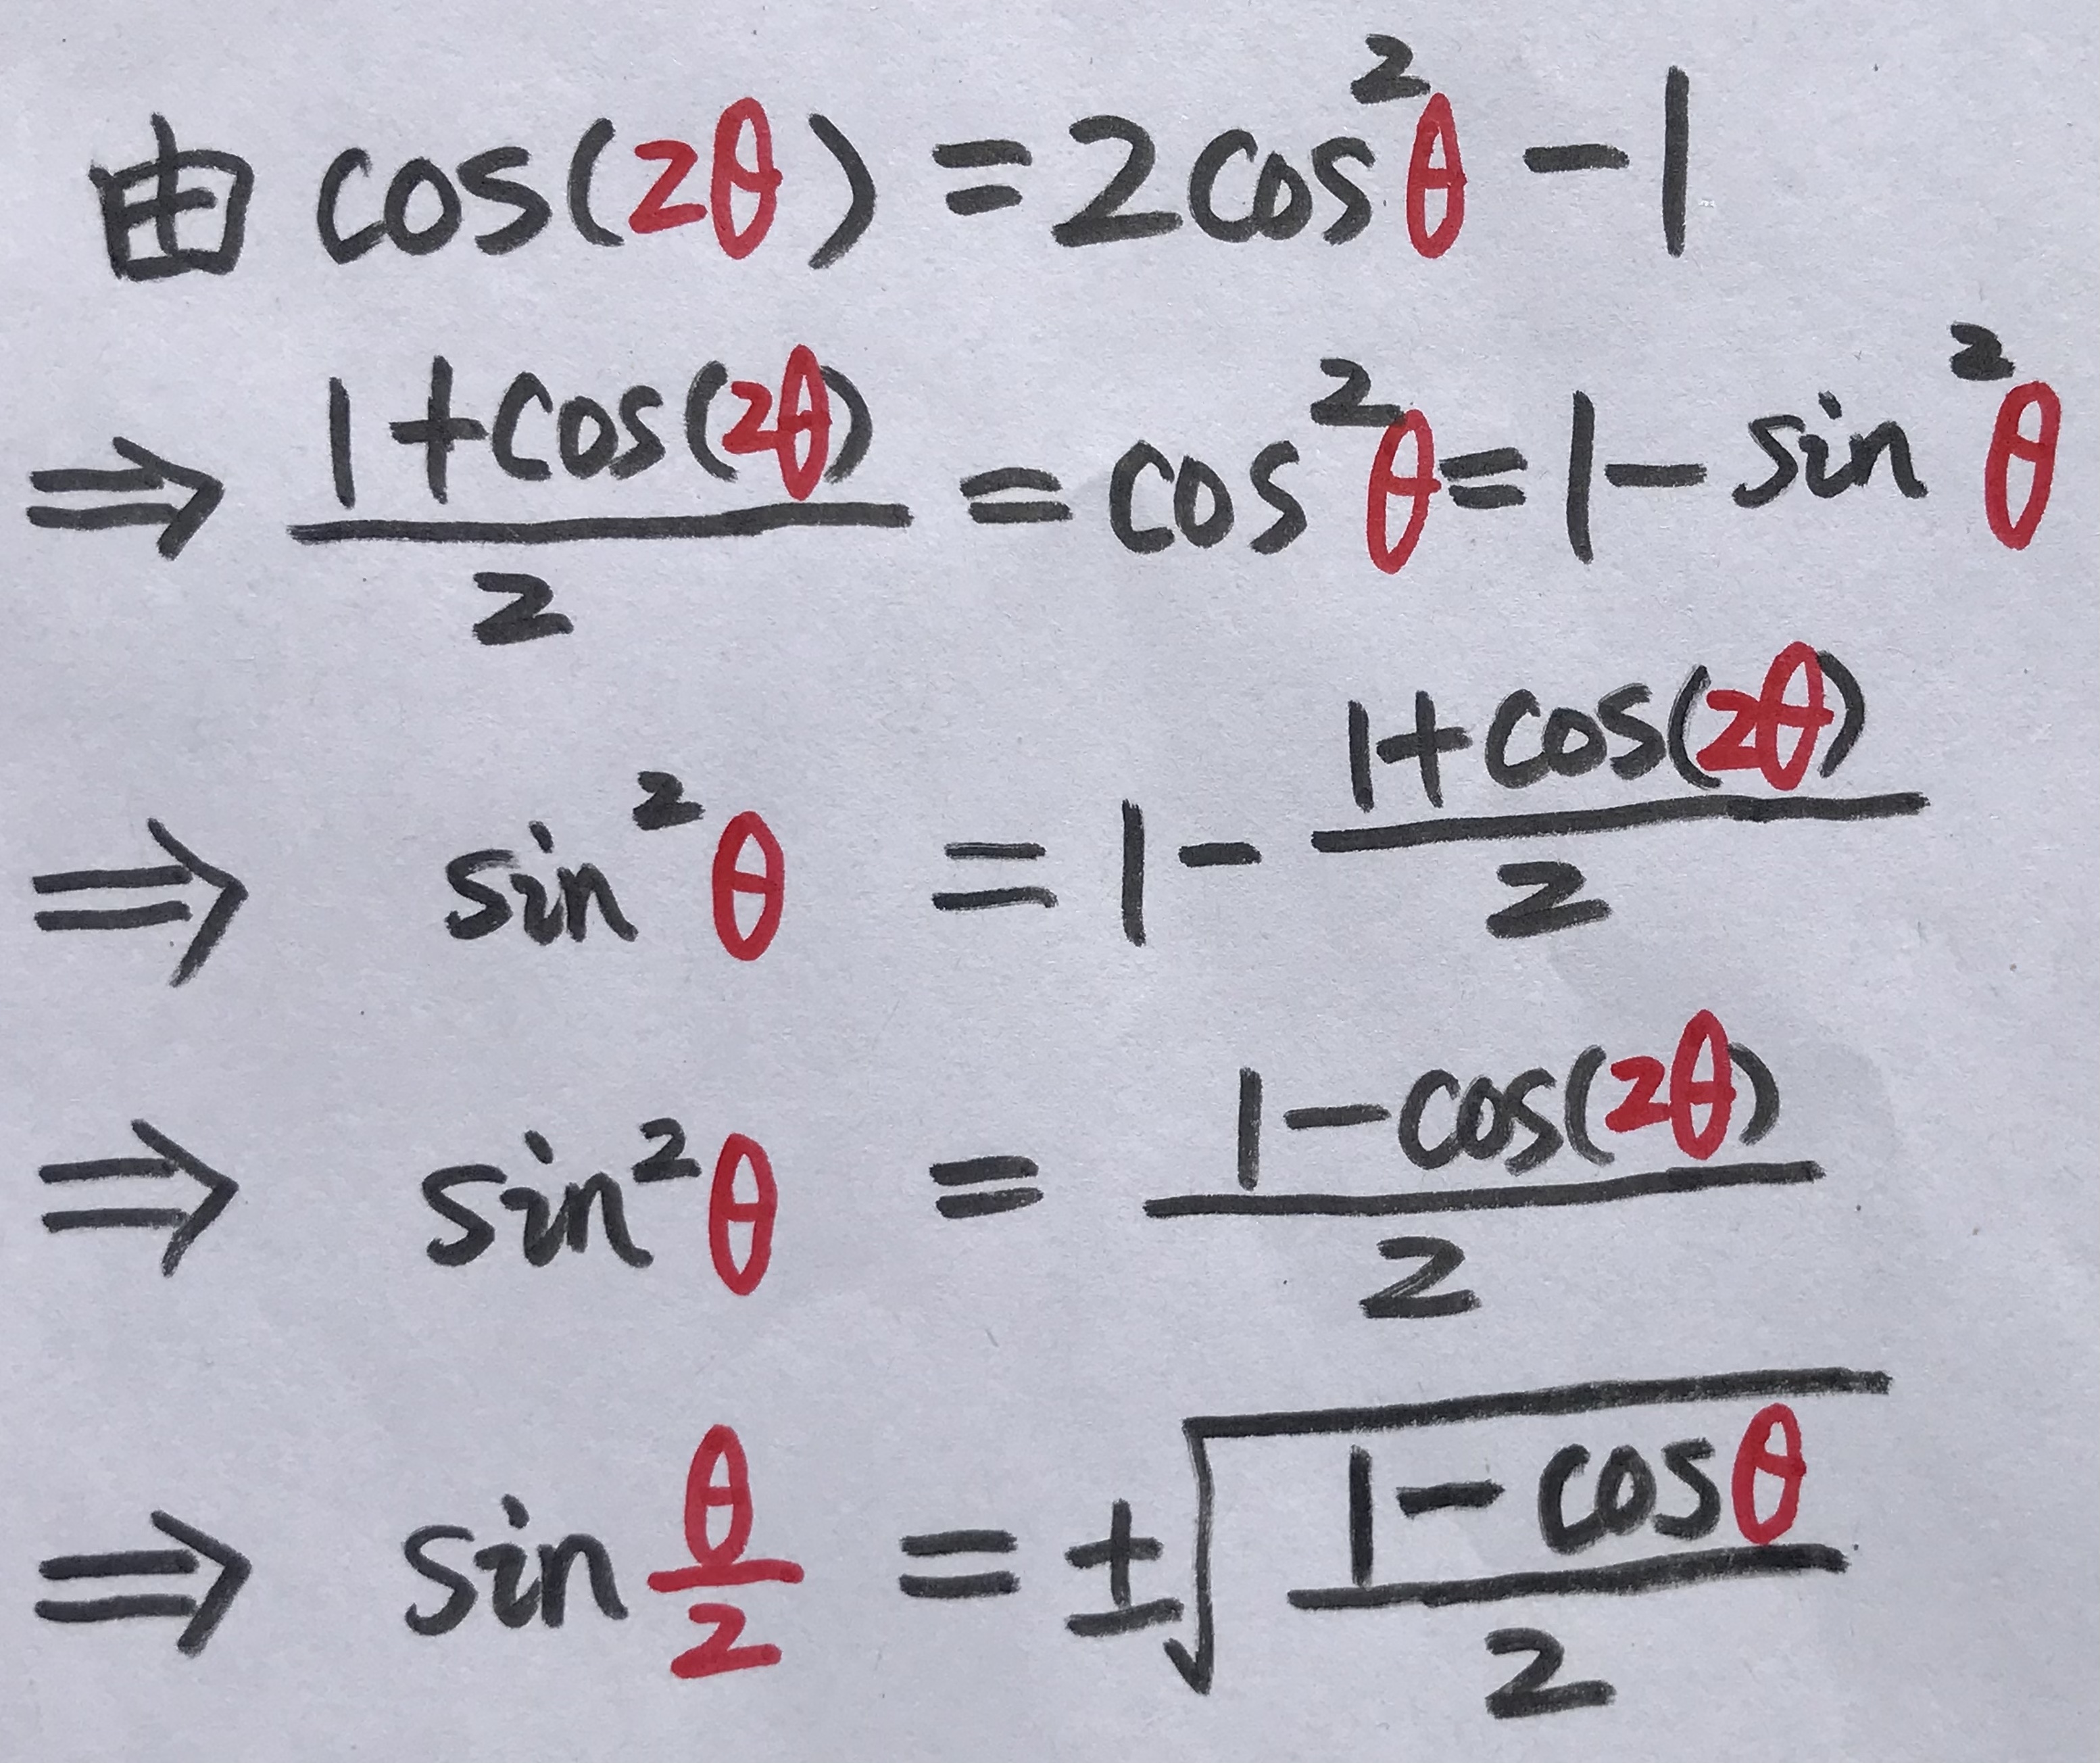 由 cos(2θ) = 2cos²θ − 1
⇒ (1+cos(2θ))/2 = cos²θ = 1 − sin²θ
⇒ sin²θ = 1 − (1+cos(2θ))/2
⇒ sin²θ = (1−cos(2θ))/2
⇒ sin θ/2 = ±√((1−cosθ)/2)